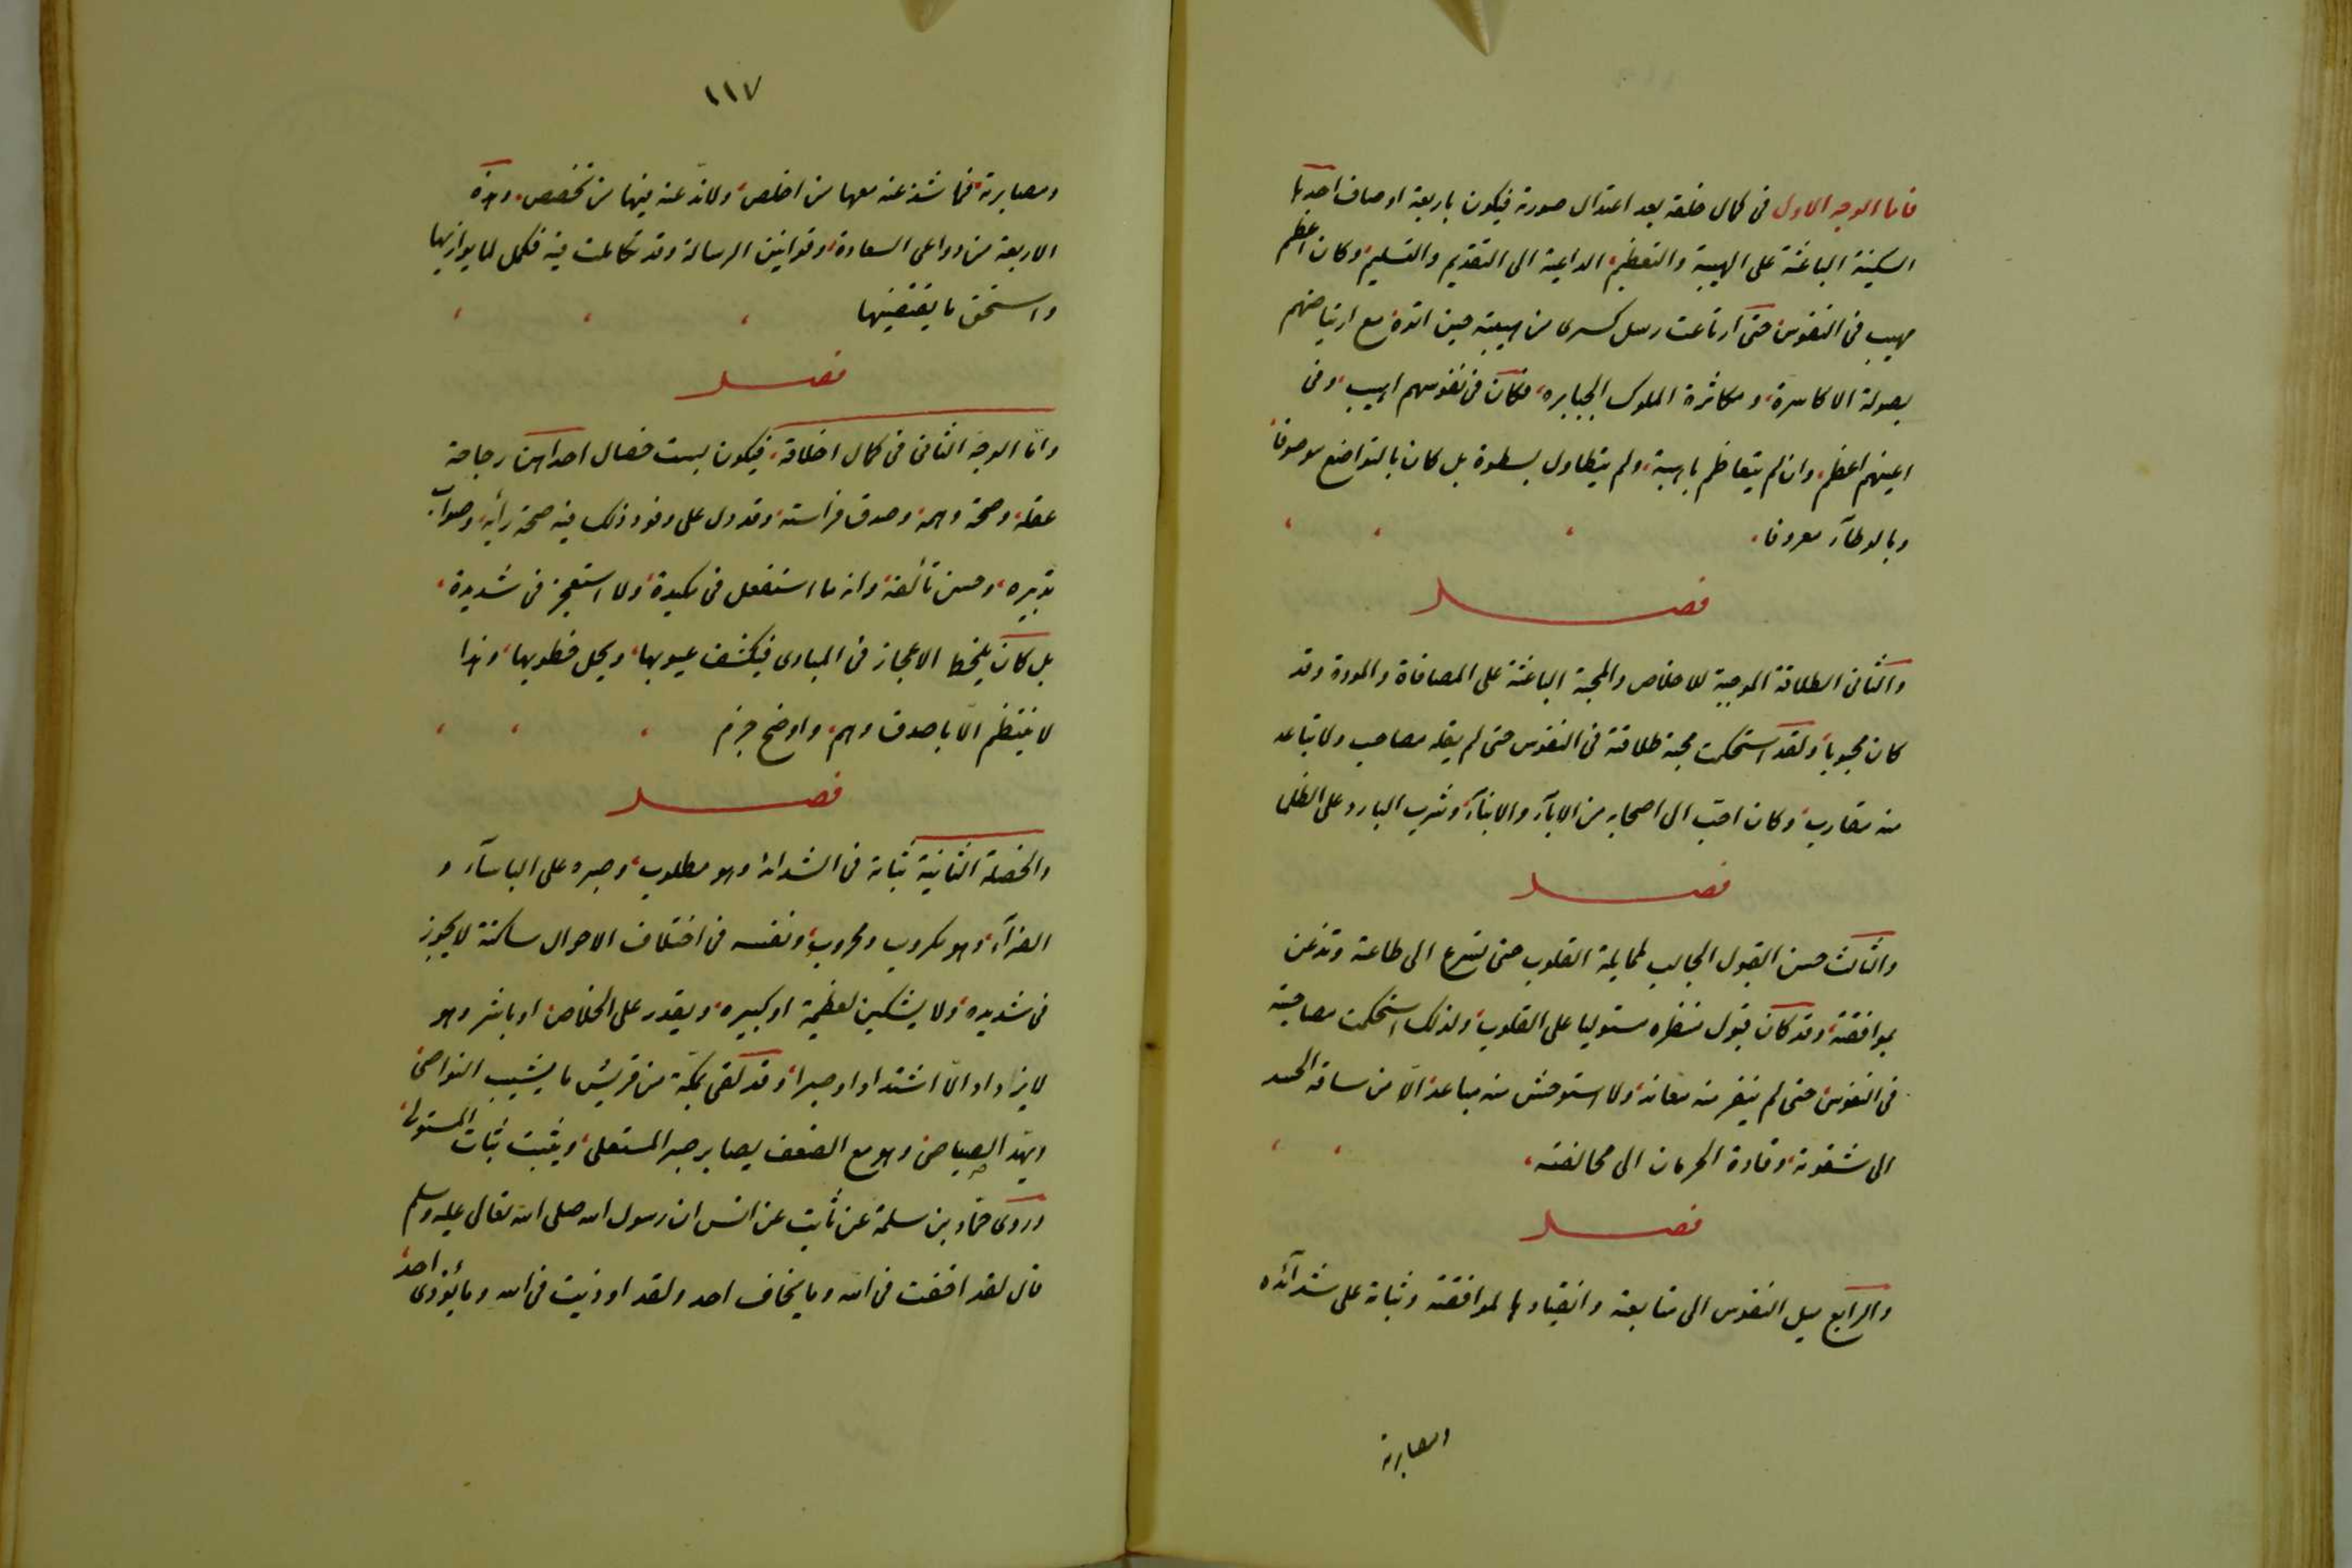 فاما الوجه الاول فى كمال خلقه بعد اعتدال صورته فيكون باربعة اوصاف احديها
السكينة الباعثة على الهيبة والتعظيم، الداعية الى التقديم والتسليم، وكان اعظم
مهيب فى النفوس، حتى ارتاعت رسل كسرى من هيبته حين اتوه، مع ارتياضهم
بصولة الاكاسرة، ومكاثرة الملوك الجبابره، فكان فى نفوسهم اهيب، وفى
اعينهم اعظم، وان لم يتعاظم باهبة، ولم يتطاول بسطوة بل كان بالتواضع موصوفا،
وبالوطآء معروفا.
فصل
والثانى الطلاقة الموجبة للاخلاص والمحبة الباعثة على المصافاة والمودة وقد
كان محبوبا، ولقد استحكمت محبة طلاقته فى النفوس حتى لم يقله مصاحب ولا تباعد
منه مقارب، وكان احب الى اصحابه من الابآء والابنآء، وشرب البارد على الظما
فصل
والثالث حسن القبول الجالب لممايلة القلوب حتى تسرع الى طاعته وتذعن
بموافقته، وقد كان قبول منظره مستوليا على القلوب، ولذلك استحكمت مصاحبته
فى النفوس، حتى لم ينفر منه معاند، ولا استوحش منه مباعد، الّا من ساقه الحسد
الى شقوته، وقاده الحرمان الى مخالفته،
فصل
والرابع ميل النفوس الى متابعته وانقيادها لموافقته وثباته على شدآئده
ومصابرته
١١٧
ومصابرته، فما شذ عنه معها من اخلص، ولا ندّ عنه فيها من تخصص. وهذه
الاربعة من دواعى السعادة، وقوانين الرسالة وقد تكاملت فيه فكمل لما يوازيها
واستحق ما يقتضيها
فصل
وامّا الوجه الثانى فى كمال اخلاقه، فيكون بست خصال احداهن رجاحة
عقله، وصحة وهمه، وصدق فراسته، وقد دل على وفور ذلك فيه صحة رأيه، وصواب
تدبيره، وحسن تألفه، وانه ما استغفل فى مكيدة، ولا استعجز فى شديدة،
بل كان يلحظ الاعجاز فى المبادى فيكشف عيوبها، ويحل خطوبها، وهذا
لا ينتظم الّا باصدق وهم، واوضح جزم
فصل
والخصلة الثانية ثباته فى الشدائد وهو مطلوب، وصبره على الباسآء و
الضرآء، وهو مكروب ومحروب، ونفسه فى اختلاف الاحوال ساكنة لا يجوز
فى شديده، ولا يشكين لعظيمة او كبيره، ويقدر على الخلاص، او باشر وهو
لا يزداد الّا اشتدادا وصبرا، وقد لقى بمكّة من قريش ما يشيب النواصى
ويهدّ الصياصى، وهو مع الضعف يصابر صبر المستعلى، ويثبت ثبات المستولى،
وروى حمّاد بن سلمة عن ثابت عن انس ان رسول الله صلى الله تعالى عليه وسلم
قال لقد اخفت فى الله وما يخاف احد ولقد اوذيت فى الله وما يؤذى احد،